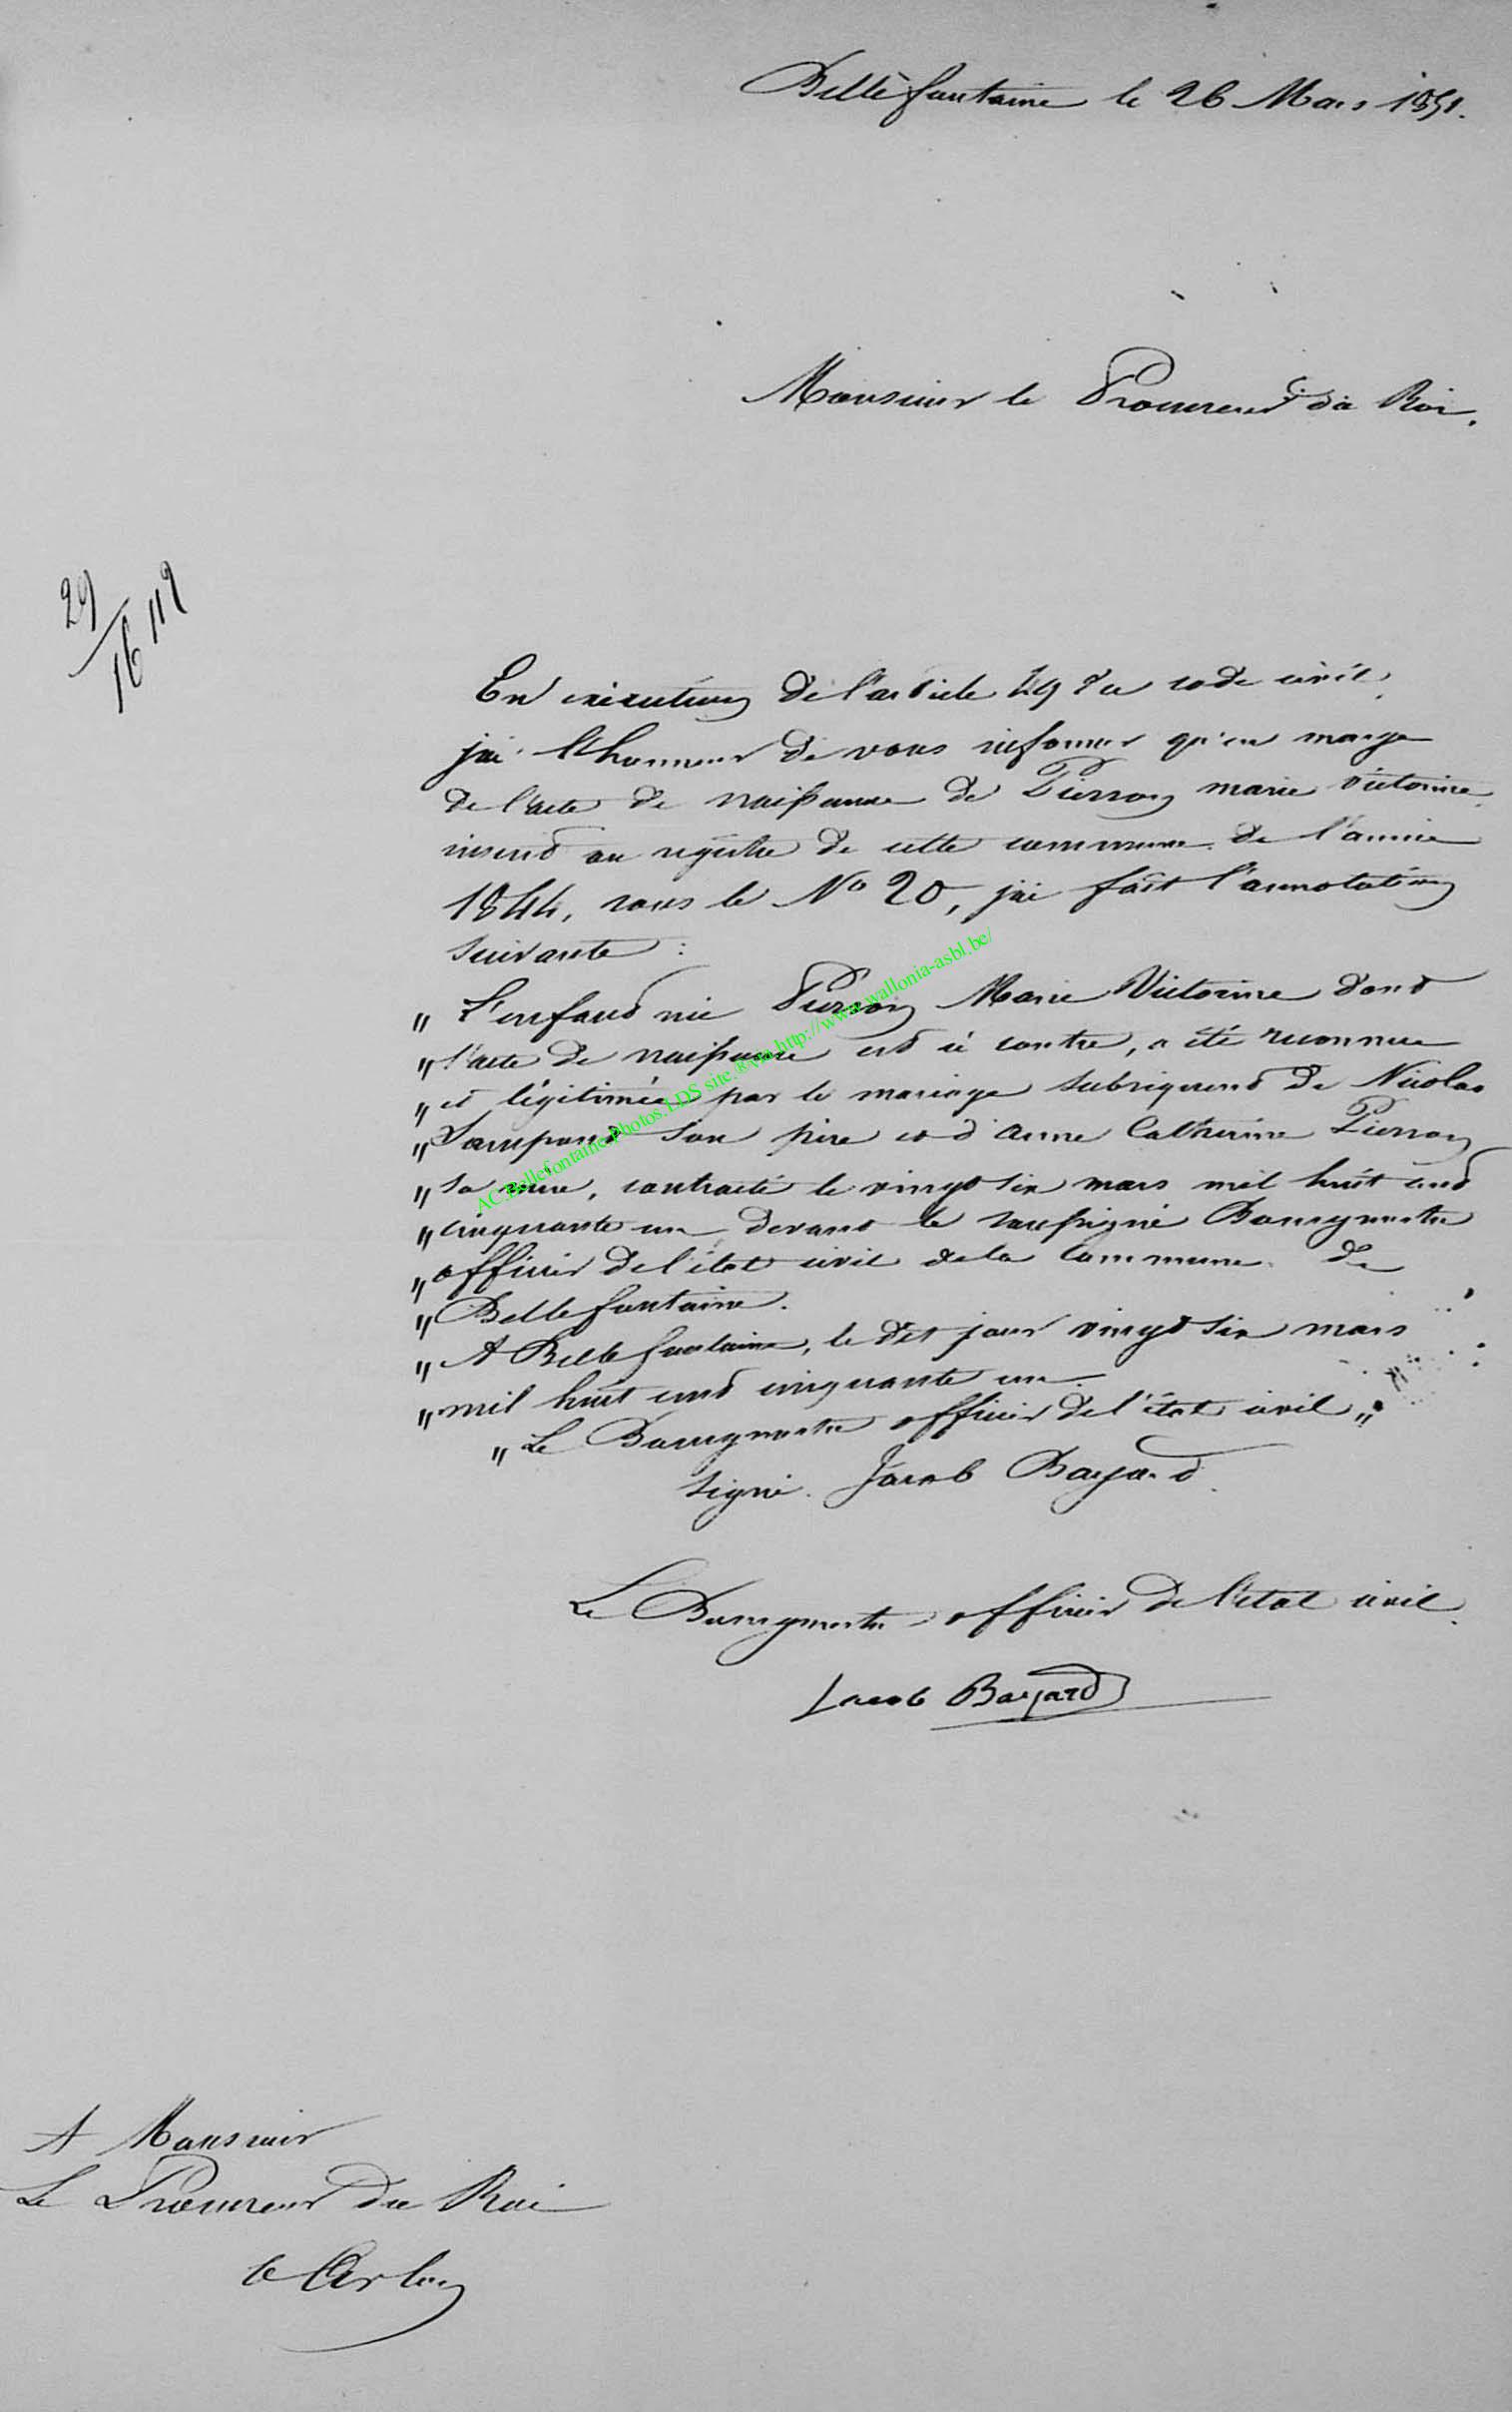 Bellefontaine le 26 Mars 1851.
Monsieur le Procureur du Roi.
29
16 112
En exécution de l'article 49 du code civil,
j'ai l'honneur de vous informer qu'en marge
de l'acte de naissance de Pierron marie victorine
inscrit au registre de cette commune de l'année
1844, sous le No 20, j'ai fait l'annotation
suivante :
„ L'enfant née Pierron Marie Victorine dont
„ l'acte de naissance est ci contre, a été reconnue
„ et légitimée par le mariage subséquent de Nicolas
„ son père et d'anne Catherine Pierron
„ sa mère, contracté le vingt six mars mil huit cent
„ cinquante un devant le soussigné Bourgmestre
„ officier de l'état civil de la commune de
„ Bellefontaine.
„ A Bellefontaine, le dit jour vingt six mars
„ mil huit cent cinquante un.
„ Le Bourgmestre officier de l'état civil „
signé. Jacob Bayard.
Le Bourgmestre officier de l'état civil.
Jacob Bayard
A Monsieur
Le Procureur du Roi
à Arlon
AC.Bellefontaine.Photos.LDS site.®via http://www.wallonia-asbl.be/